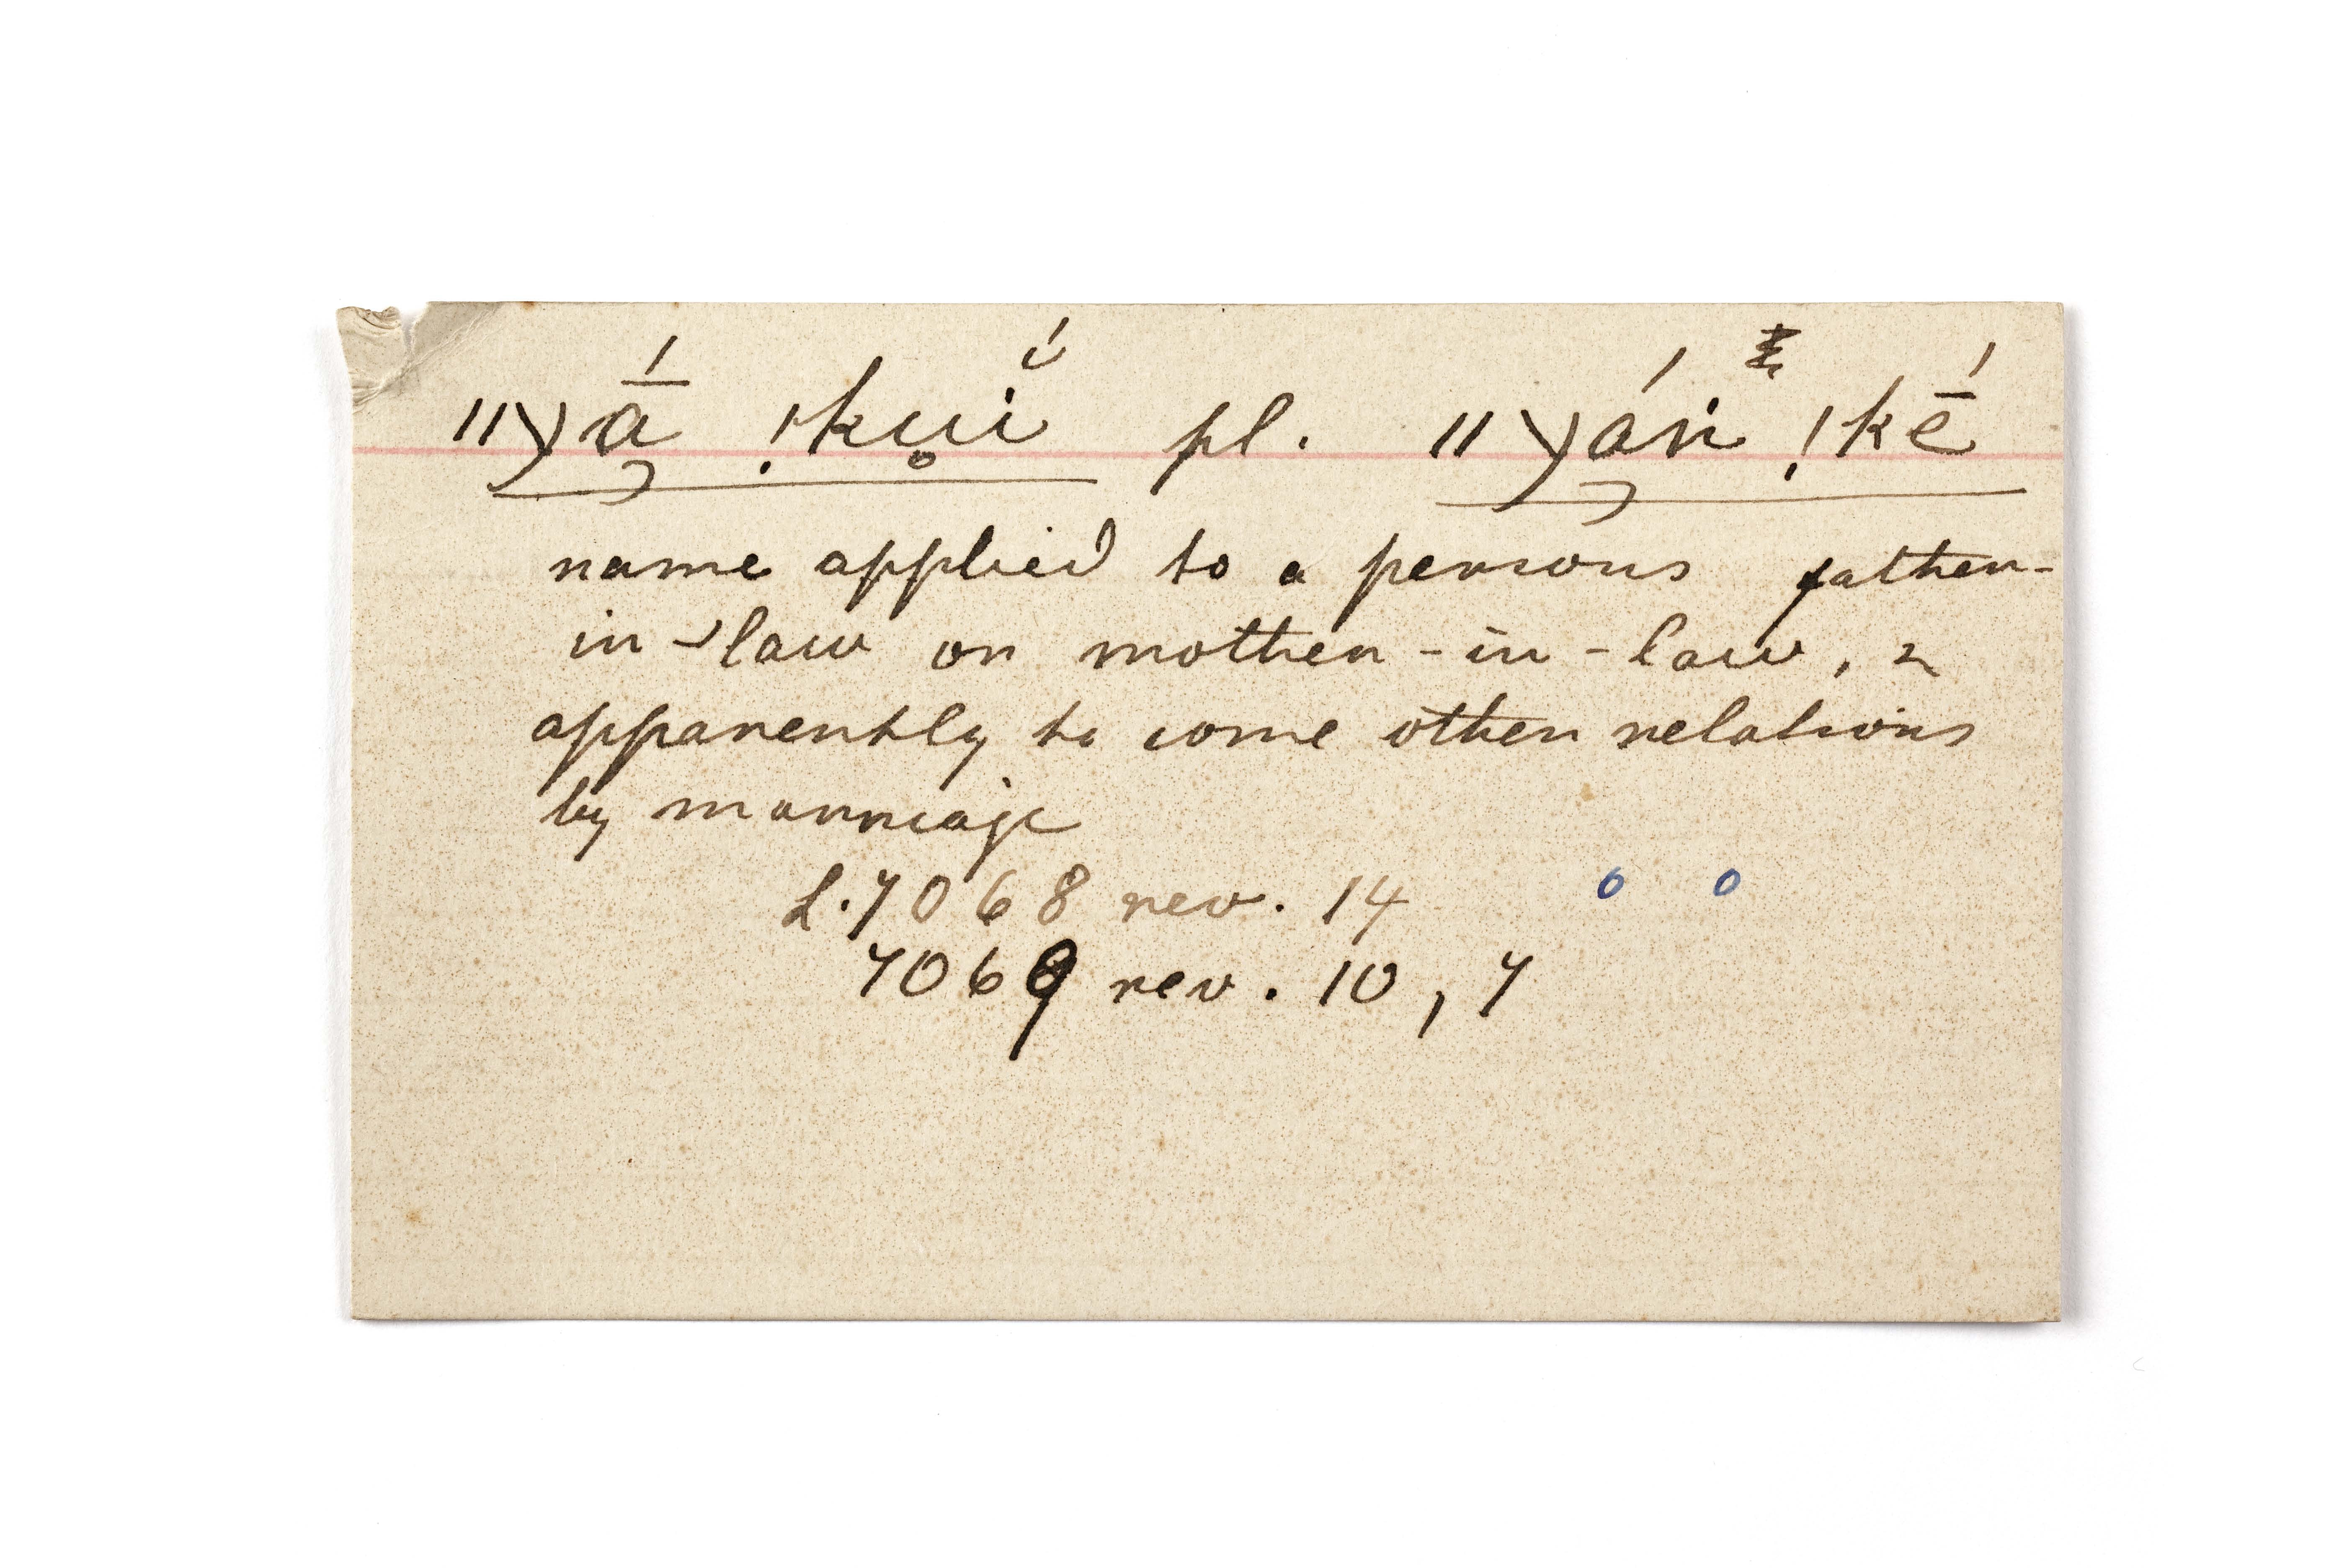 ǁχā́ !kuí̯ pl. ǁχáń !kḗ
name applied to a persons father-
in-law or mother-in-law, &
apparently to some other relations
by marriage
L.7068 rev. 14 o o
7069 rev. 10, 7